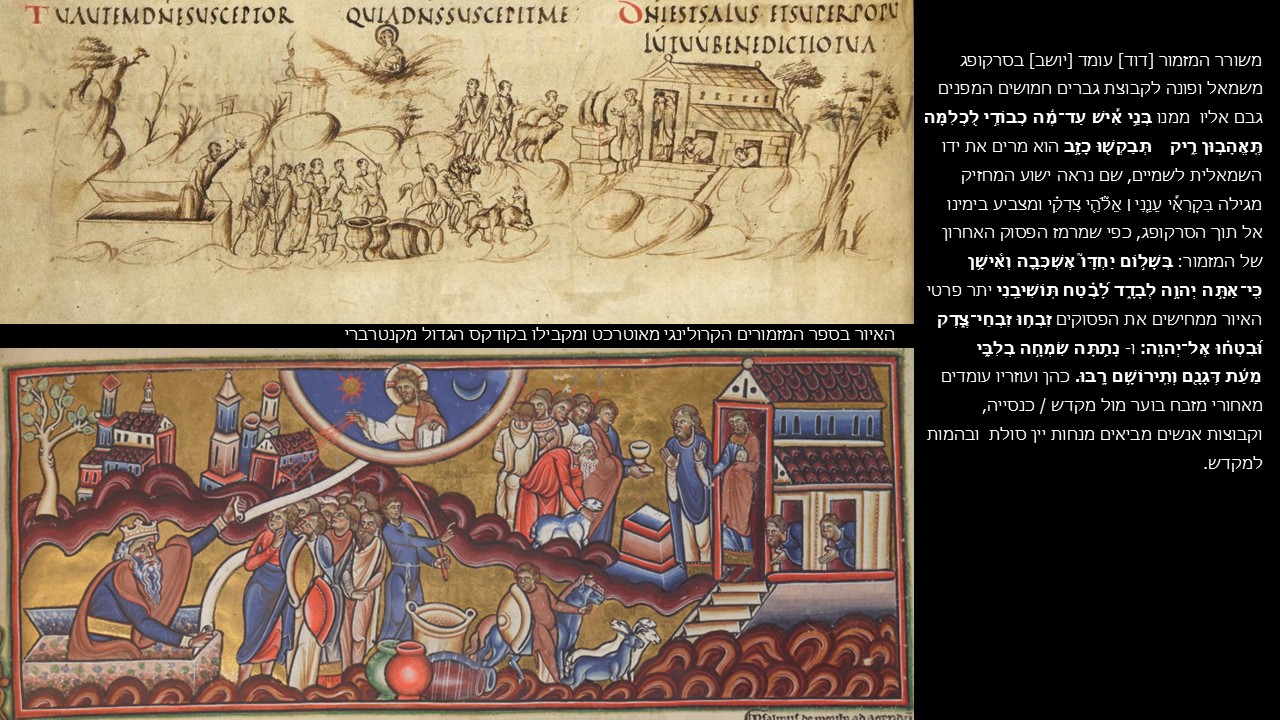 TUAUTEMDNESUSCEPTOR QUIADNSSUSCEPITME: DNIESTSALUS ETSUPERPOPU
LUTUUBENEDICTIOTUA:
משורר המזמור [דוד] עומד [יושב] בסרקופג
משמאל ופונה לקבוצת גברים חמושים המפנים
גבם אליו ממנו בְּנֵ֥י אִ֡ישׁ עַד־מֶ֬ה כְבוֹדִ֣י לִ֭כְלִמָּה
תֶּאֱהָב֣וּן רִ֑יק תְּבַקְשׁ֖וּ כָזָ֣ב הוא מרים את ידו
השמאלית לשמיים, שם נראה ישוע המחזיק
מגילה בְּקָרְאִ֡י עֲנֵ֤נִי ׀ אֱלֹ֘הֵ֤י צִדְקִ֗י ומצביע בימינו
אל תוך הסרקופג, כפי שמרמז הפסוק האחרון
של המזמור: בְּשָׁל֣וֹם יַחְדָּו֮ אֶשְׁכְּבָ֪ה וְאִ֫ישָׁ֥ן
כִּֽי־אַתָּ֣ה יְהוָ֣ה לְבָדָ֑ד לָ֝בֶ֗טַח תּוֹשִׁיבֵֽנִי יתר פרטי
האיור ממחישים את הפסוקים זִבְח֥וּ זִבְחֵי־צֶ֑דֶק
וּ֝בִטְח֗וּ אֶל־יְהוָֽה׃ ו- נָתַ֣תָּה שִׂמְחָ֣ה בְלִבִּ֑י
מֵעֵ֬ת דְּגָנָ֖ם וְתִֽירוֹשָׁ֣ם רָֽבּוּ. כהן ועוזריו עומדים
מאחורי מזבח בוער מול מקדש / כנסייה,
וקבוצות אנשים מביאים מנחות יין סולת ובהמות
למקדש.
האיור בספר המזמורים הקרולינגי מאוטרכט ומקבילו בקודקס הגדול מקנטרברי